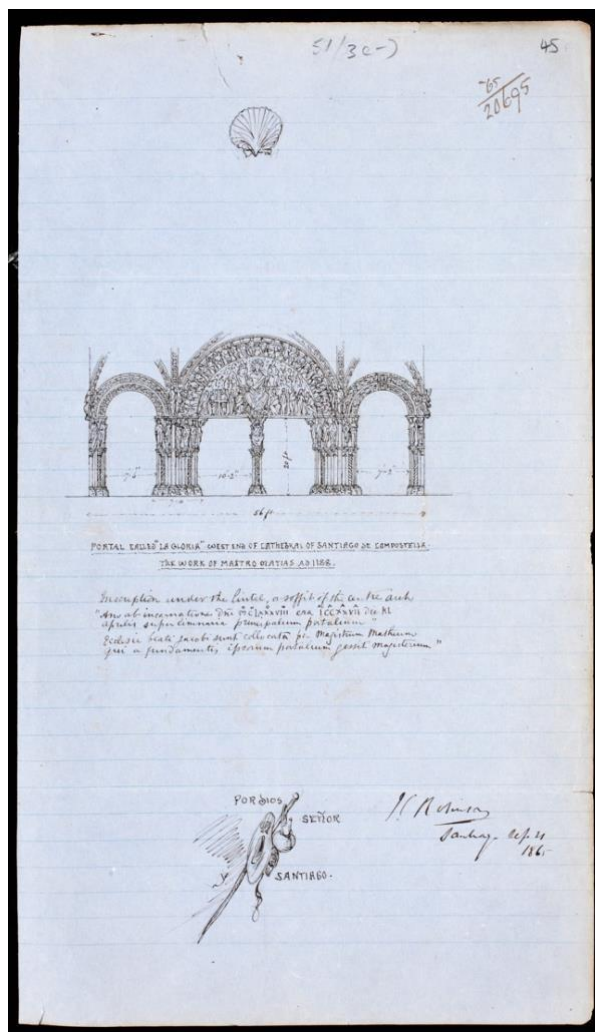 51/3
45
-65
20695
7-2
16-2
20 ft
7-2
56 ft
PORTAL CALLED "LA GLORIA" WEST END OF CATHEDRAL OF SANTIAGO DE COMPOSTELLA.
THE WORK OF MAËTRO MATIAS. AD 1188.
Inscription under the lintel, or soffit of the centre arch
"Ano ab incarnatione Dni era Die
principalium portalium"
Ecclesie beati Jacobi sunt collocata per Magistrum Matheum
qui a fundamentis ipsorum portalium gessit magisterium"
POR DIOS
SEÑOR
Y SANTIAGO.
J C Robinson
Santiago Sep. 21
186